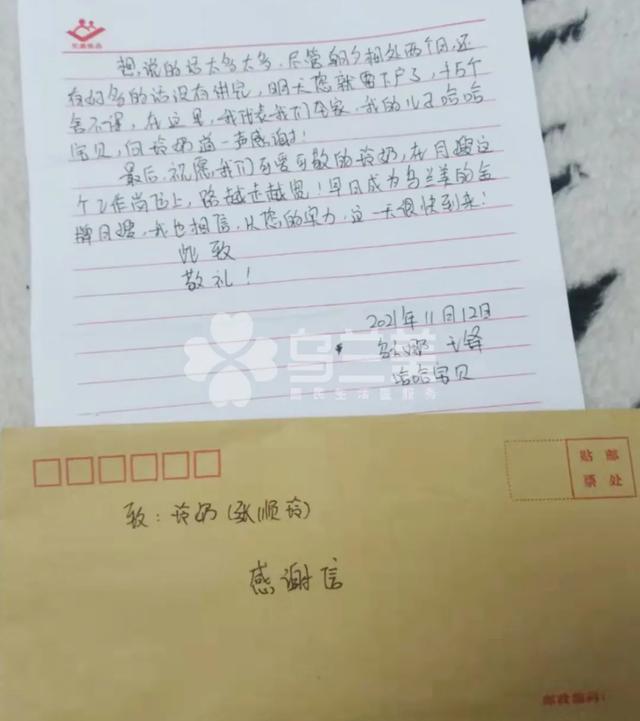 想说的话太多太多,尽管朝夕相处两个月,还
有好多的话没有讲完,明天您就要下户了,十万个
舍不得,在这里,我代表我们全家,我的儿子哈哈
宝贝,向玲奶道一声感谢!
最后,祝愿我们可爱可敬的玲奶,在月嫂这
个工作岗位上,路越走越宽!早日成为乌兰美的金
牌月嫂,我也相信,以您的实力,这一天很快到来!
此致
敬礼!
2021年11月12日
哈哈宝贝
乌兰美
居民生活服务
贴邮
票处
致:玲奶(张顺玲)
感谢信
邮政编码: